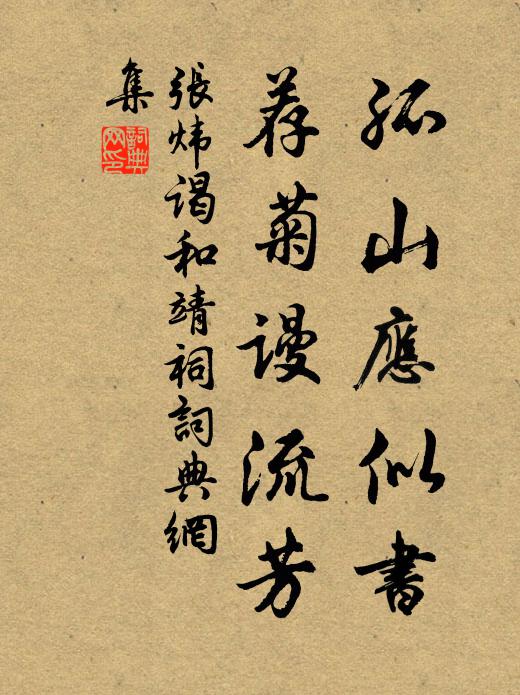 孤山應似書
荐菊謾流芳
張炜謁和靖祠詞典網
集
詞典
网印